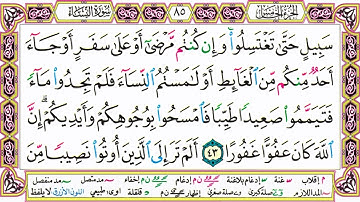 الجزء الخامس ٨٥ سورة النساء
سَبِيلٍ حَتَّىٰ تَغْتَسِلُوا۟ ۚ وَإِن كُنتُم مَّرْضَىٰٓ أَوْ عَلَىٰ سَفَرٍ أَوْ جَآءَ
أَحَدٌ مِّنكُم مِّنَ ٱلْغَآئِطِ أَوْ لَـٰمَسْتُمُ ٱلنِّسَآءَ فَلَمْ تَجِدُوا۟ مَآءً
فَتَيَمَّمُوا۟ صَعِيدًا طَيِّبًا فَٱمْسَحُوا۟ بِوُجُوهِكُمْ وَأَيْدِيكُمْ ۗ إِنَّ
ٱللَّهَ كَانَ عَفُوًّا غَفُورًا ٤٣ أَلَمْ تَرَ إِلَى ٱلَّذِينَ أُوتُوا۟ نَصِيبًا مِّنَ